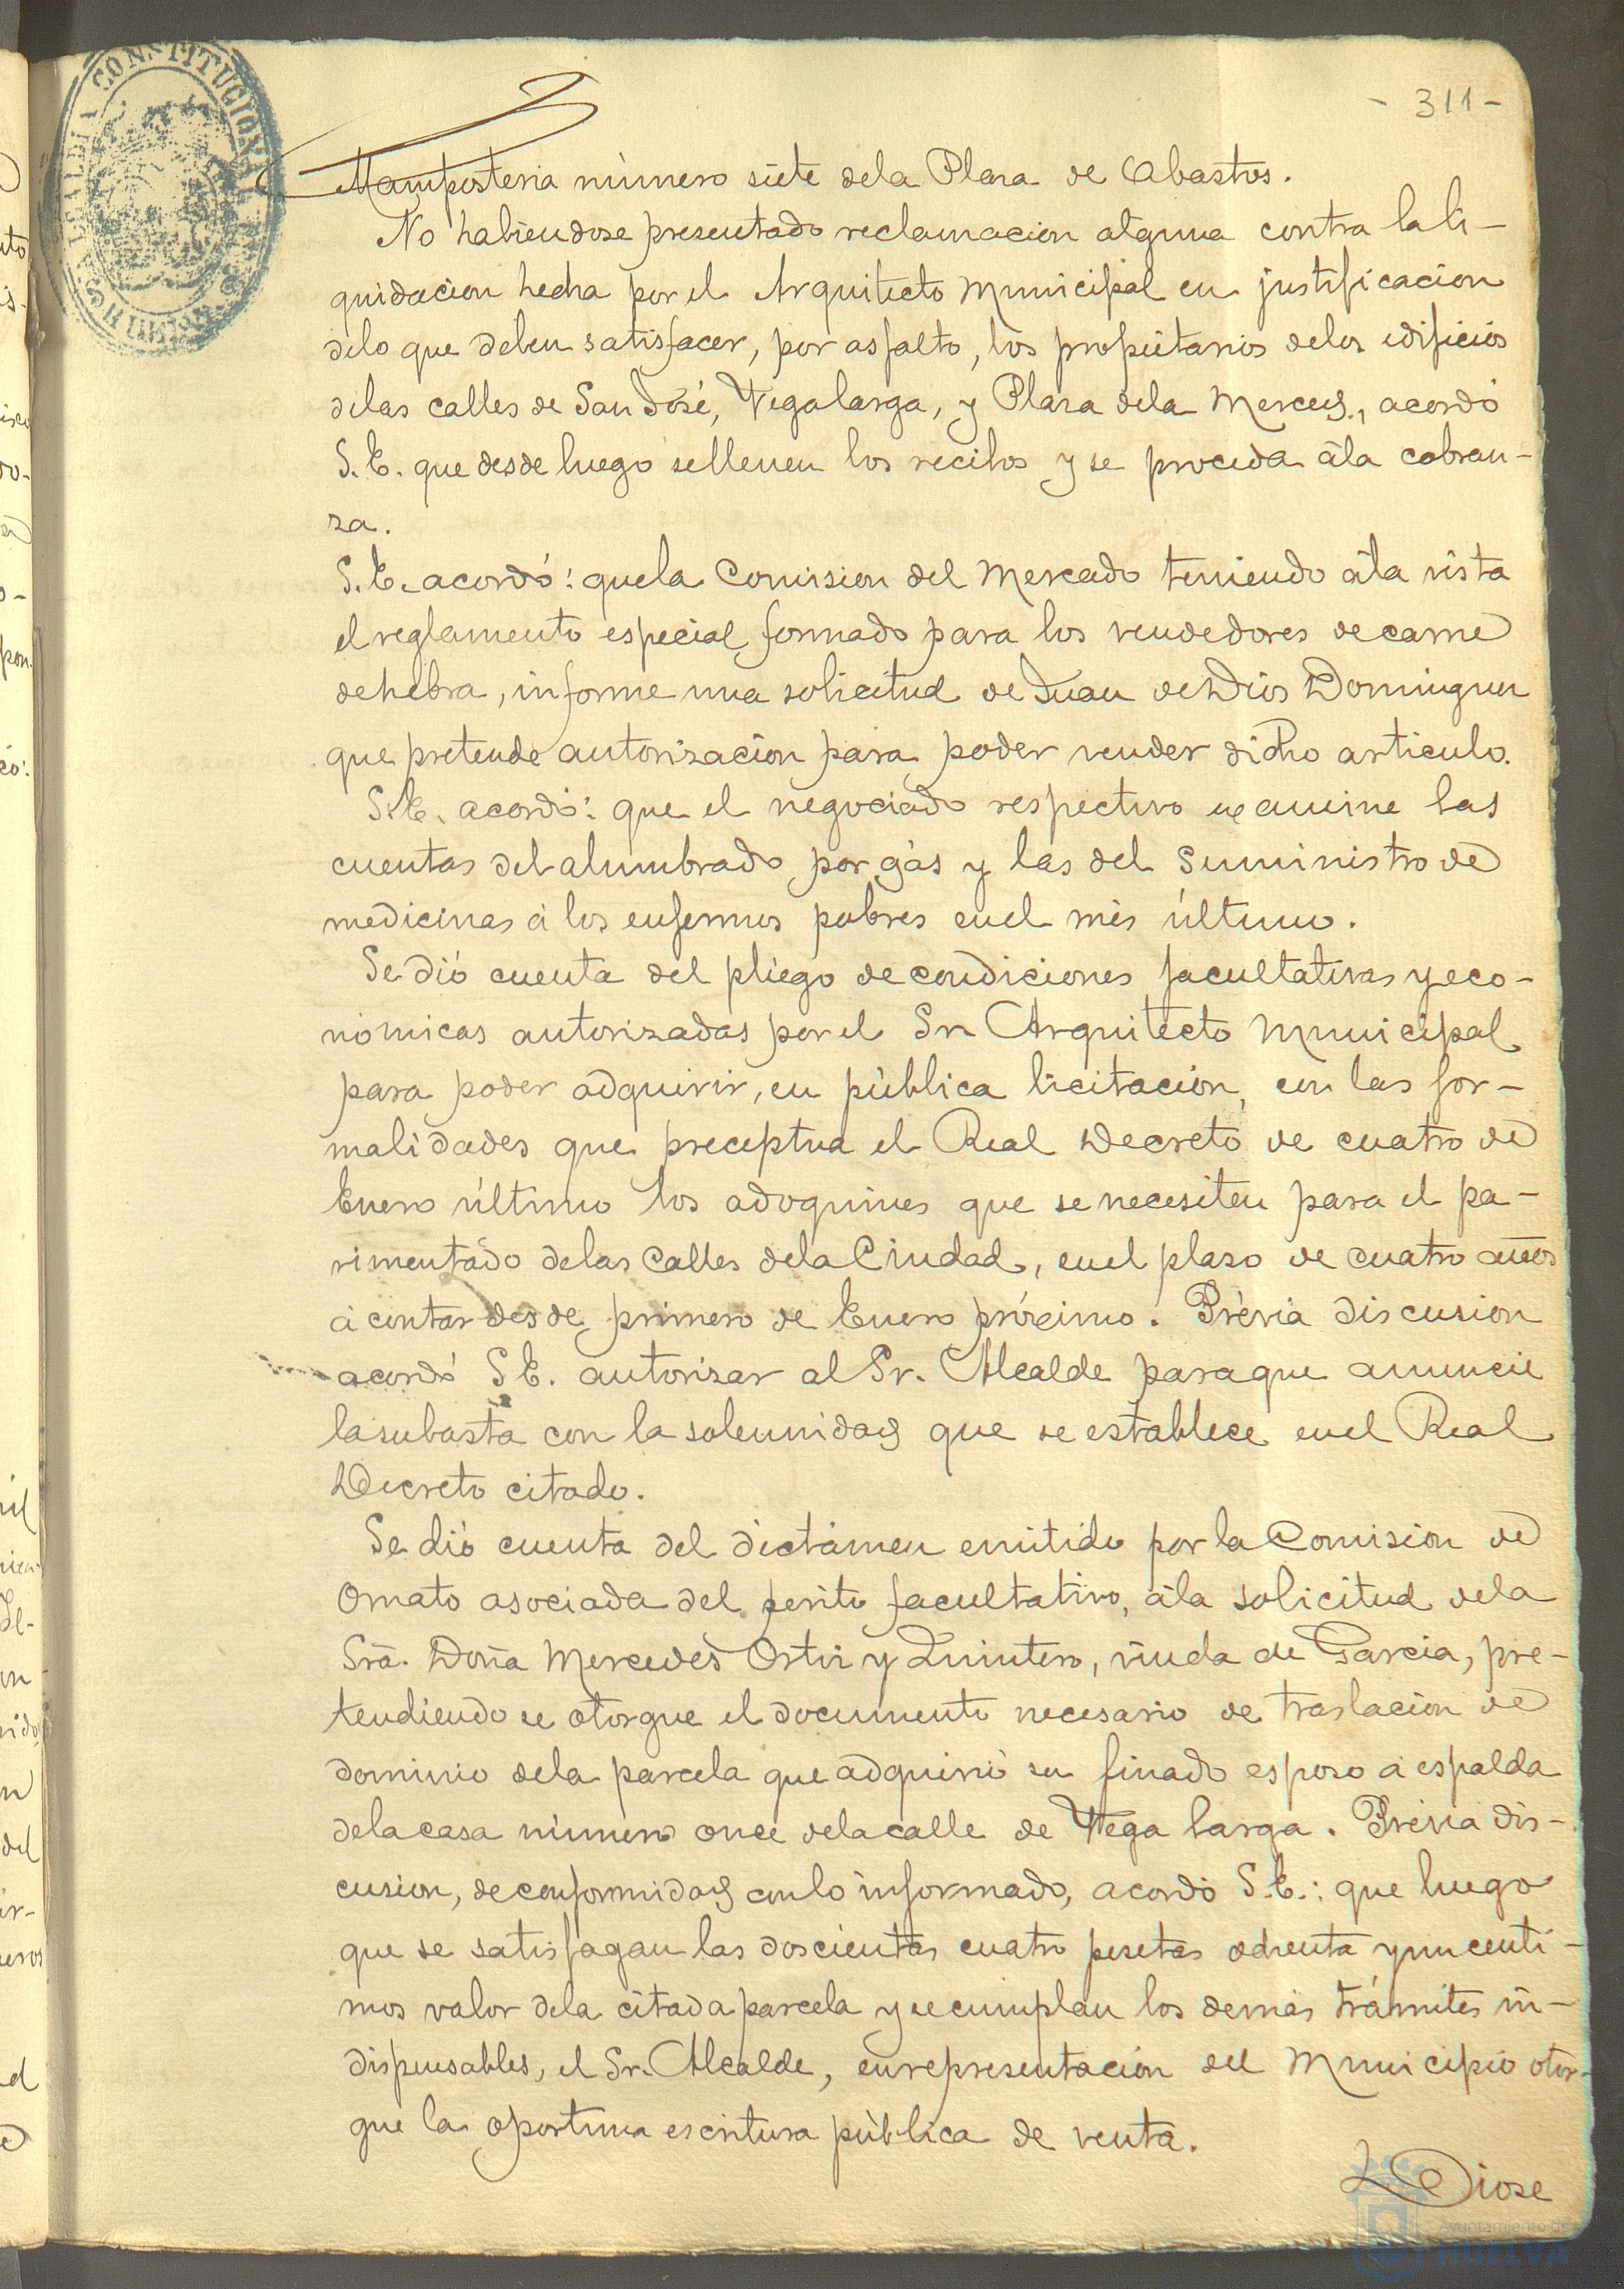 - 311 -
ALCALDÍA CONSTITUCIONAL
Mamposteria número siete dela Plaza de Abastos.
No habiendose presentado reclamacion alguna contra la li-
quidacion hecha por el Arquitecto Municipal en justificacion
delo que deben satisfacer, por asfalto, los propietarios delos edificios
delas calles de San José, Vegalarga, y Plaza dela Merced, acordó
S. E. que desde luego sellenen los recibos y se proceda ála cobran-
za.
S. E. acordó: quela Comision del Mercado teniendo ála vista
el reglamento especial formado para los vendedores de carne
de hebra, informe una solicitud de Juan de Dios Dominguez
que pretende autorizacion para poder vender dicho articulo.
S. E. acordó: que el negociado respectivo examine las
cuentas del alumbrado por gás y las del suministro de
medicinas á los enfermos pobres enel mes último.
Se dió cuenta del pliego de condiciones facultativas y eco-
nómicas autorizadas por el Sr Arquitecto Municipal
para poder adquirir, en pública licitacion, con las for-
malidades que preceptua el Real Decreto de cuatro de
Enero último los adoquines que se necesiten para el pa-
vimentado delas Calles dela Ciudad, enel plazo de cuatro años
á contar desde primero de Enero próximo. Prévia discusion
acordó S E. autorizar al Sr. Alcalde paraque anuncie
lasubasta con la solemnidad que se establece enel Real
Decreto citado.
Se dió cuenta del dictámen emitido por la Comision de
Ornato asociada del perito facultativo, ála solicitud dela
Srã. Doña Mercedes Ortiz y Quintero, viuda de Garcia, pre-
tendiendo se otorgue el documento necesario de traslacion de
dominio dela parcela que adquirió su finado esposo á espalda
delacasa número once delacalle de Vega larga. Prévia dis-
cusion, de conformidad conlo informado, acordó S. E.: que luego
que se satisfagan las doscientas cuatro pesetas ochenta yun centi-
mos valor dela citada parcela y se cumplan los demás trámites in-
dispensables, el Sr. Alcalde, enrepresentacion del Municipio otor-
gue la oportuna escritura pública de venta.
Diose
Ayuntamiento de
HUELVA